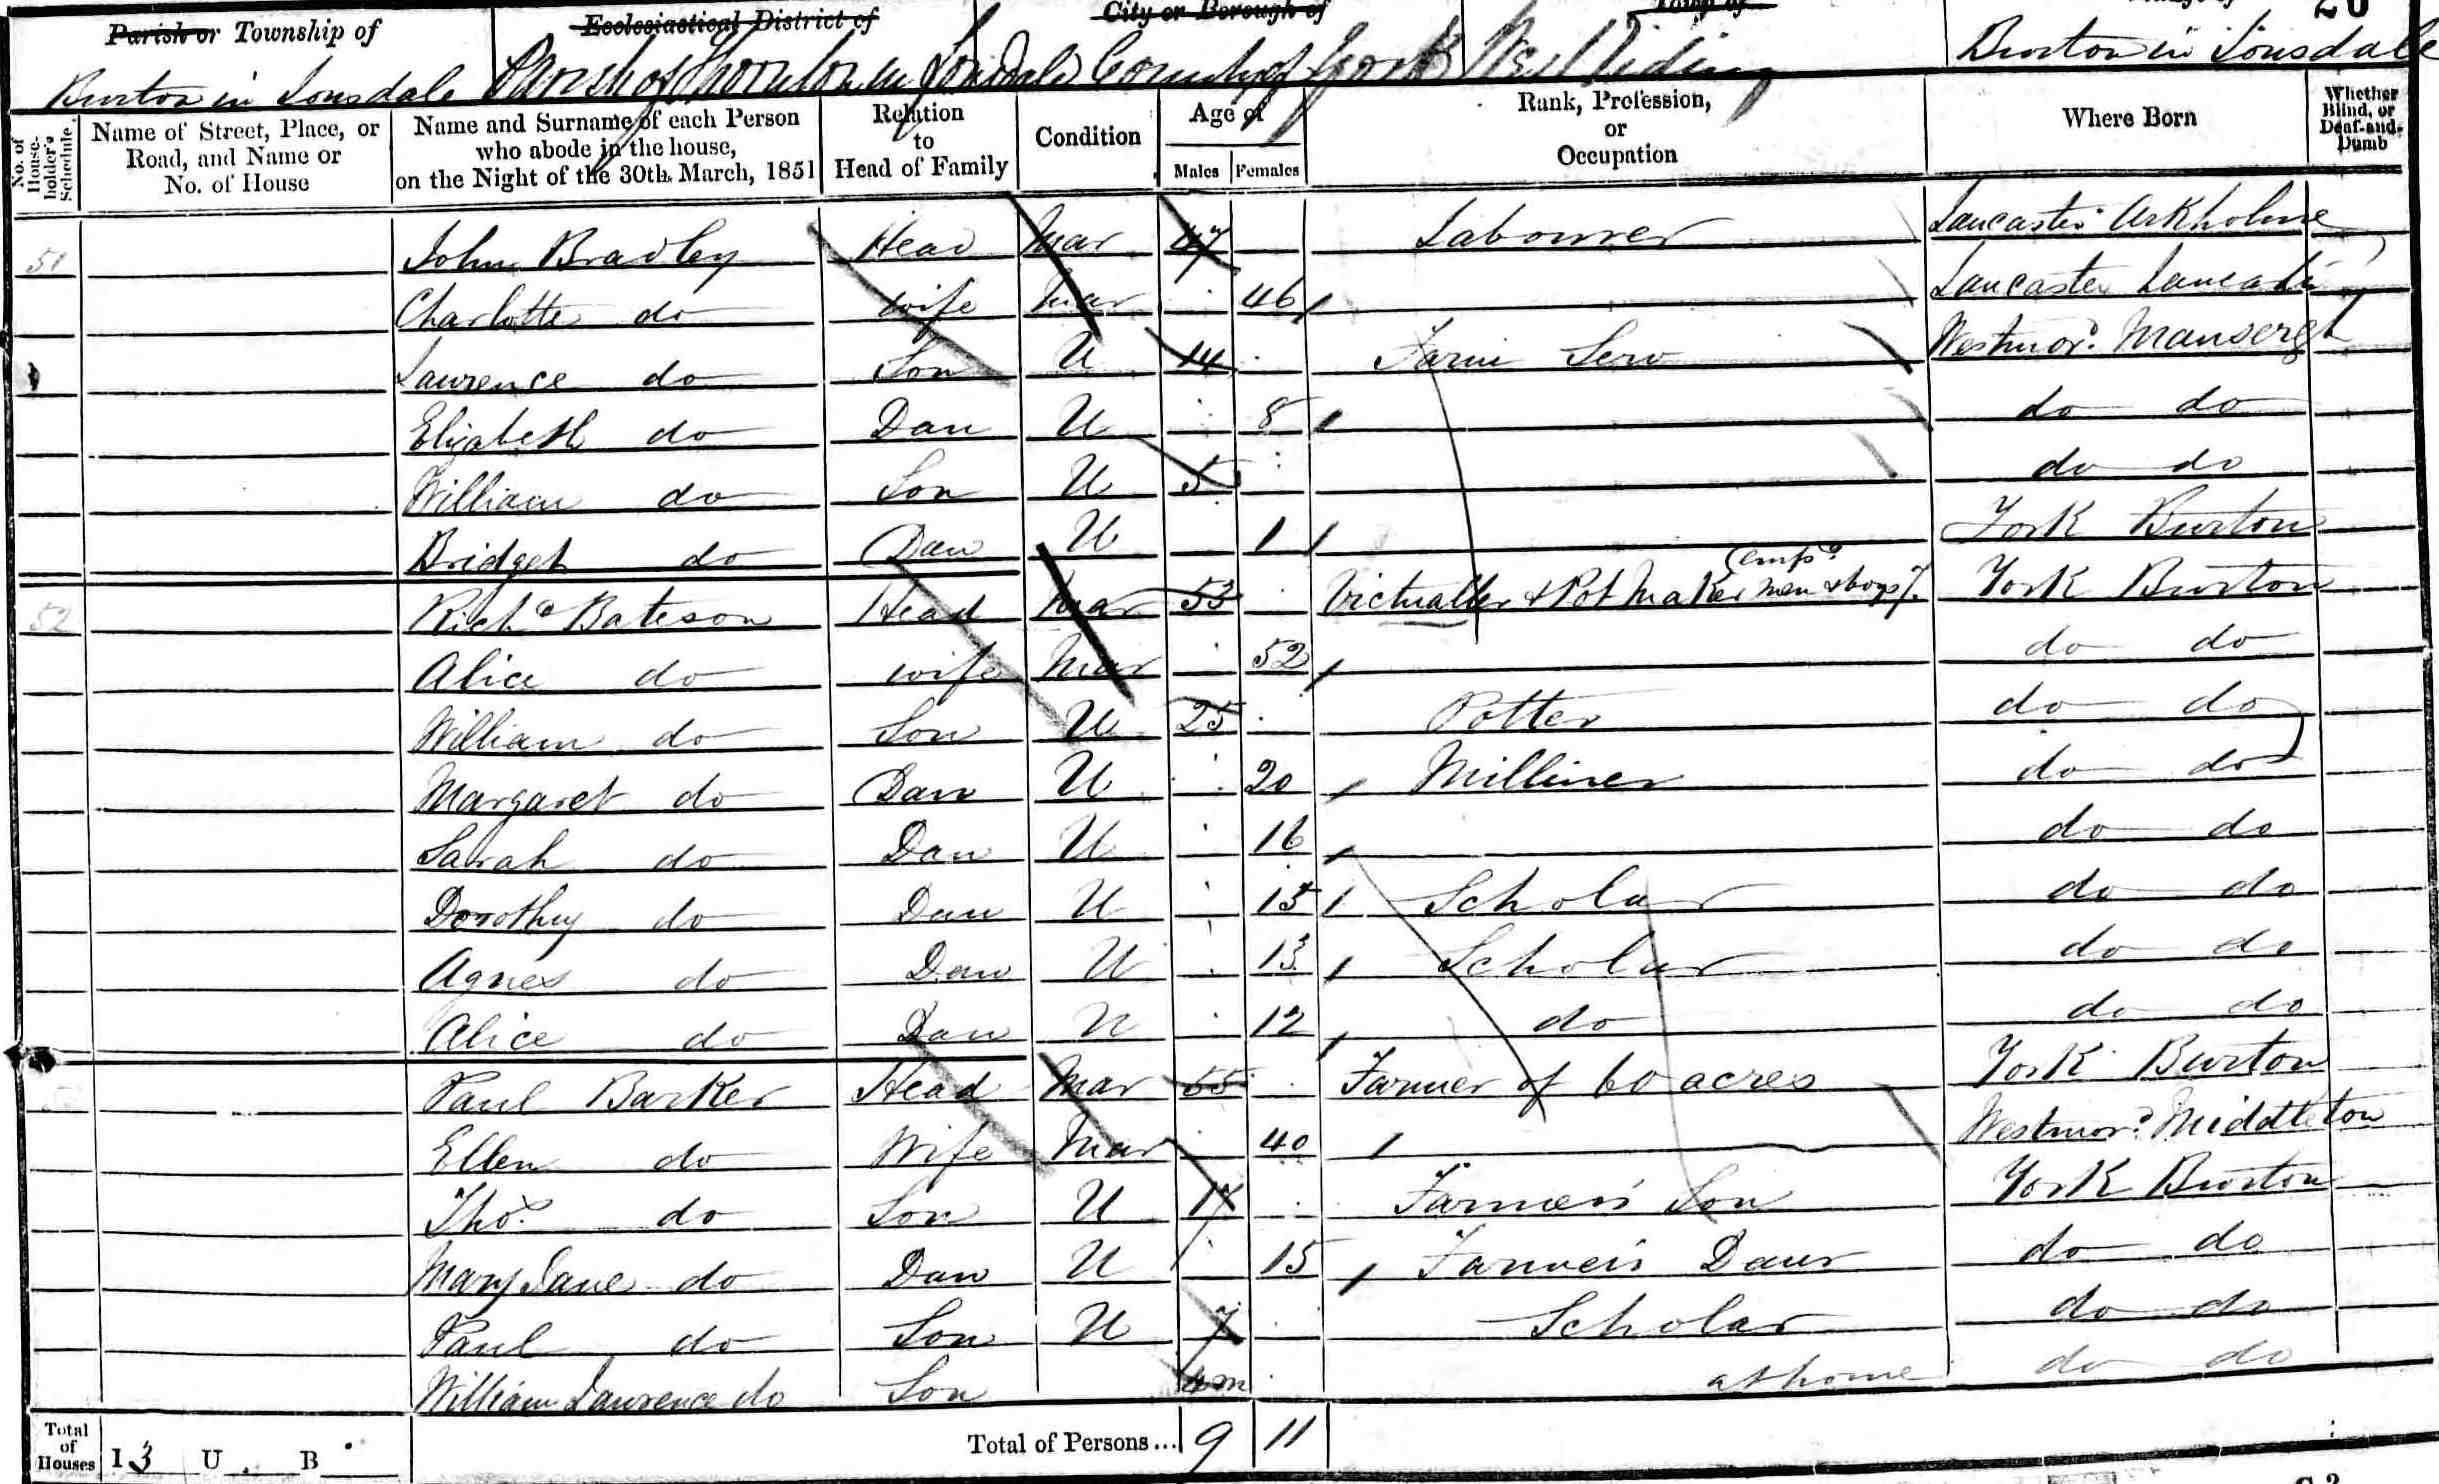 Parish or Township of Ecclesiastical District of City or Borough of Town of 20
Burton in Lonsdale Parish of Thornton in Lonsdale County of York West Riding Burton in Lonsdale
No. of House-holder's Schedule Name of Street, Place, or Road, and Name or No. of House Name and Surname of each Person who abode in the house, on the Night of the 30th March, 1851 Relation to Head of Family Condition Age of Males Females Rank, Profession, or Occupation Where Born Whether Blind, or Deaf-and-Dumb
51 John Bradley Head Mar 47 Labourer Lancaster Arkholme
Charlotte do wife Mar 46 Lancaster Lancaster
Lawrence do Son U 14 Farm Serv Westmord. Mansergh
Elizabeth do Dau U 8 do do
William do Son U 5 do do
Bridget do Dau U 1 York Burton
52 Richd Bateson Head Mar 53 Victualler & Pot Maker empg men & boys 7. York Burton
Alice do wife Mar 52 do do
William do Son U 25 Potter do do
Margaret do Dau U 20 Milliner do do
Sarah do Dau U 16 do do
Dorothy do Dau U 15 Scholar do do
Agnes do Dau U 13 Scholar do do
Alice do Dau U 12 do do do
Paul Barker Head Mar 55 Farmer of 60 acres York Burton
Ellen do Wife Mar 40 Westmord. Middleton
Thos. do Son U 17 Farmer's Son York Burton
Mary Jane do Dau U 15 Farmer's Daur do do
Paul do Son U 7 Scholar do do
William Lawrence do Son 4m at home do do
Total of Houses I 3 U B Total of Persons... 9 11